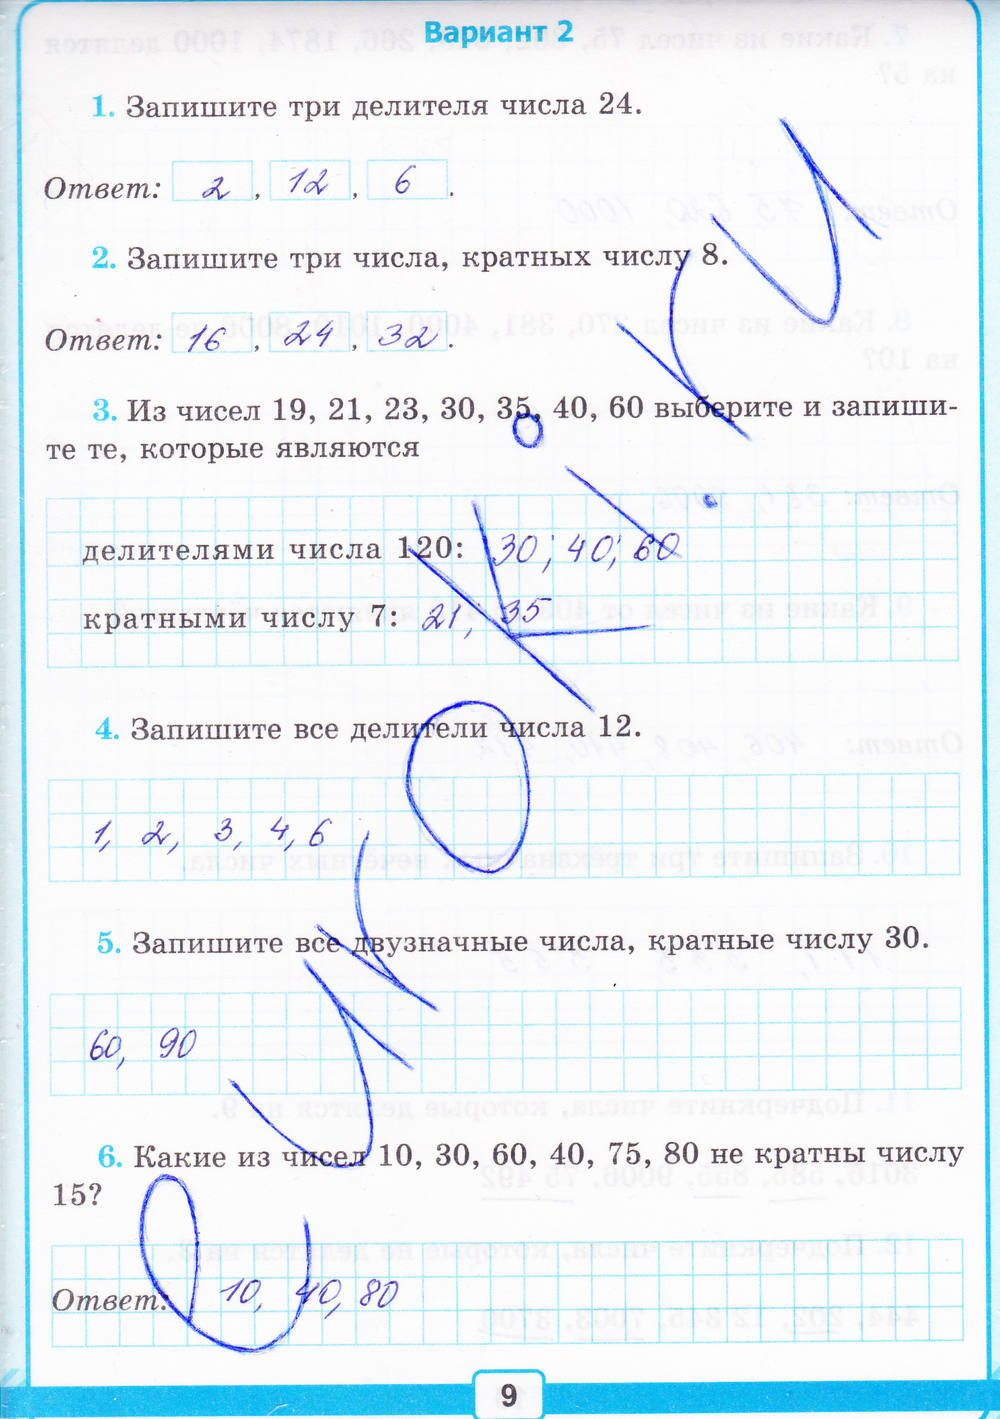 Вариант 2
1. Запишите три делителя числа 24.
Ответ: 2, 12, 6.
2. Запишите три числа, кратных числу 8.
Ответ: 16, 24, 32.
3. Из чисел 19, 21, 23, 30, 35, 40, 60 выберите и запиши-
те те, которые являются
делителями числа 120: 30; 40; 60
кратными числу 7: 21, 35
4. Запишите все делители числа 12.
1, 2, 3, 4, 6
5. Запишите все двузначные числа, кратные числу 30.
60, 90
6. Какие из чисел 10, 30, 60, 40, 75, 80 не кратны числу
15?
Ответ: 10, 40, 80
9